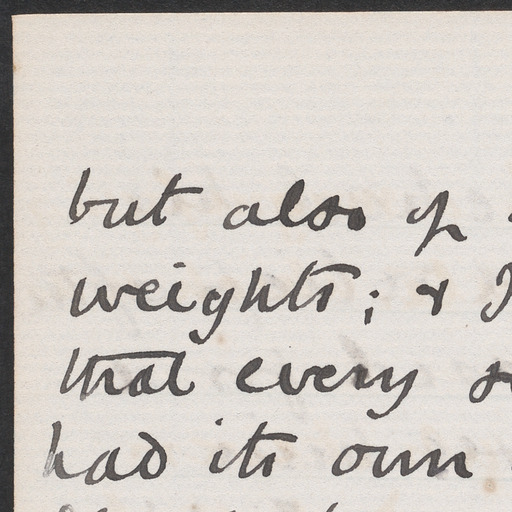 but also of
weights; & I
that every
had its own